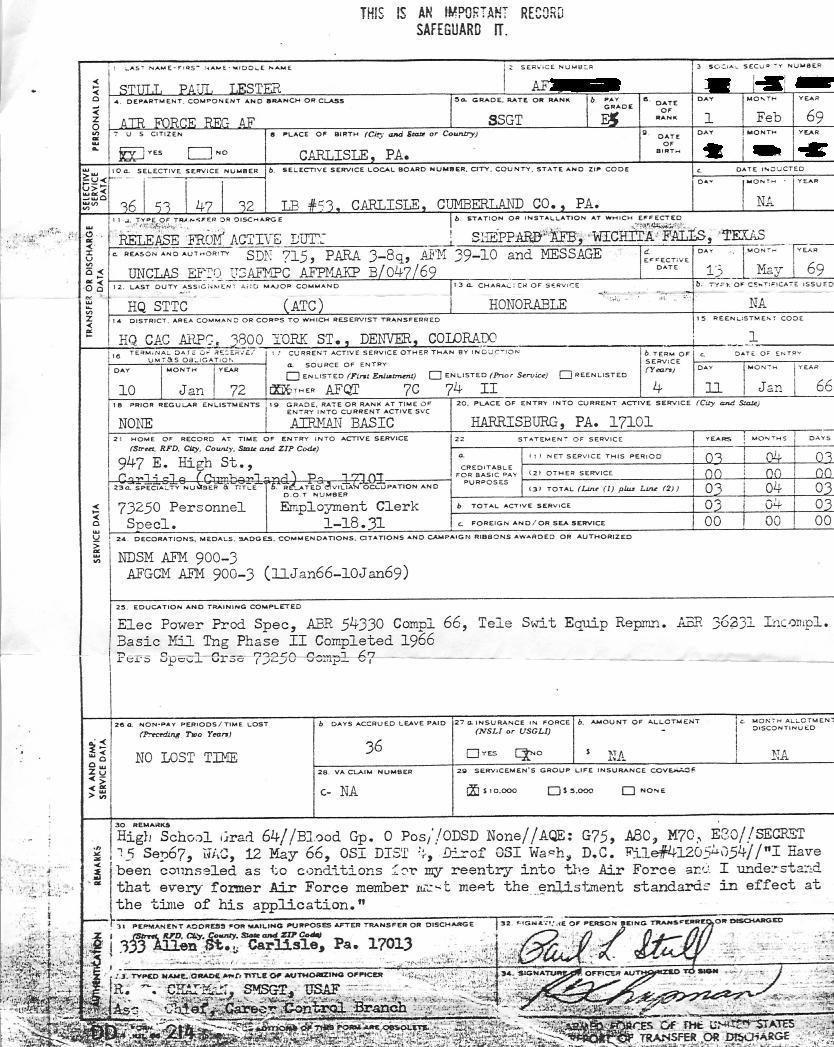 THIS IS AN IMPORTANT RECORD
SAFEGUARD IT.
PERSONAL DATA
1. LAST NAME-FIRST NAME-MIDDLE NAME
STULL PAUL LESTER
2. SERVICE NUMBER
AF
3. SOCIAL SECURITY NUMBER
4. DEPARTMENT, COMPONENT AND BRANCH OR CLASS
AIR FORCE REG AF
5a. GRADE, RATE OR RANK
SSGT
b. PAY GRADE
E5
6. DATE OF RANK
DAY MONTH YEAR
1 Feb 69
7. U S CITIZEN
XX YES NO
8. PLACE OF BIRTH (City and State or Country)
CARLISLE, PA.
9. DATE OF BIRTH
DAY MONTH YEAR
SELECTIVE SERVICE DATA
10 a. SELECTIVE SERVICE NUMBER
36 53 47 32
b. SELECTIVE SERVICE LOCAL BOARD NUMBER, CITY, COUNTY, STATE AND ZIP CODE
LB #53, CARLISLE, CUMBERLAND CO., PA.
c. DATE INDUCTED
DAY MONTH YEAR
NA
TRANSFER OR DISCHARGE DATA
11 a. TYPE OF TRANSFER OR DISCHARGE
RELEASE FROM ACTIVE DUTY
b. STATION OR INSTALLATION AT WHICH EFFECTED
SHEPPARD AFB, WICHITA FALLS, TEXAS
c. REASON AND AUTHORITY SDN 715, PARA 3-8q, AFM 39-10 and MESSAGE
UNCLAS EFTO USAFMPC AFPMAKP B/047/69
d. EFFECTIVE DATE
DAY MONTH YEAR
13 May 69
12. LAST DUTY ASSIGNMENT AND MAJOR COMMAND
HQ STTC (ATC)
13 a. CHARACTER OF SERVICE
HONORABLE
b. TYPE OF CERTIFICATE ISSUED
NA
14 DISTRICT, AREA COMMAND OR CORPS TO WHICH RESERVIST TRANSFERRED
HQ CAC ARPC, 3800 YORK ST., DENVER, COLORADO
15. REENLISTMENT CODE
1
16. TERMINAL DATE OF RESERVE/ UMT&S OBLIGATION
DAY MONTH YEAR
10 Jan 72
17. CURRENT ACTIVE SERVICE OTHER THAN BY INDUCTION
a. SOURCE OF ENTRY:
ENLISTED (First Enlistment) ENLISTED (Prior Service) REENLISTED
XX OTHER AFQT 7C 74 II
b. TERM OF SERVICE (Years)
4
c. DATE OF ENTRY
DAY MONTH YEAR
11 Jan 66
18 PRIOR REGULAR ENLISTMENTS
NONE
19 GRADE, RATE OR RANK AT TIME OF ENTRY INTO CURRENT ACTIVE SVC
AIRMAN BASIC
20. PLACE OF ENTRY INTO CURRENT ACTIVE SERVICE (City and State)
HARRISBURG, PA. 17101
SERVICE DATA
21 HOME OF RECORD AT TIME OF ENTRY INTO ACTIVE SERVICE
(Street, RFD, City, County, State and ZIP Code)
947 E. High St.,
Carlisle (Cumberland) Pa. 17101
22 STATEMENT OF SERVICE YEARS MONTHS DAYS
a. CREDITABLE FOR BASIC PAY PURPOSES
(1) NET SERVICE THIS PERIOD 03 04 03
(2) OTHER SERVICE 00 00 00
(3) TOTAL (Line (1) plus Line (2)) 03 04 03
b TOTAL ACTIVE SERVICE 03 04 03
c. FOREIGN AND/OR SEA SERVICE 00 00 00
23 a. SPECIALTY NUMBER & TITLE
73250 Personnel
Specl.
b. RELATED CIVILIAN OCCUPATION AND D.O.T NUMBER
Employment Clerk
1-18.31
24. DECORATIONS, MEDALS, BADGES, COMMENDATIONS, CITATIONS AND CAMPAIGN RIBBONS AWARDED OR AUTHORIZED
NDSM AFM 900-3
AFGCM AFM 900-3 (11Jan66-10Jan69)
25. EDUCATION AND TRAINING COMPLETED
Elec Power Prod Spec, ABR 54330 Compl 66, Tele Swit Equip Repmn. ABR 36231 Incompl.
Basic Mil Tng Phase II Completed 1966
Pers Specl Crse 73250 Compl 67
VA AND EMP. SERVICE DATA
26 a. NON-PAY PERIODS/TIME LOST
(Preceding Two Years)
NO LOST TIME
b DAYS ACCRUED LEAVE PAID
36
27 a. INSURANCE IN FORCE
(NSLI or USGLI)
YES X NO
b. AMOUNT OF ALLOTMENT
$ NA
c. MONTH ALLOTMENT DISCONTINUED
NA
28. VA CLAIM NUMBER
C- NA
29 SERVICEMEN'S GROUP LIFE INSURANCE COVERAGE
X $10,000 $5,000 NONE
REMARKS
30. REMARKS
High School Grad 64//Blood Gp. O Pos//ODSD None//AQE: G75, A80, M70, E80//SECRET
15 Sep67, NAC, 12 May 66, OSI DIST 4, Dirof OSI Wash, D.C. File#412054054//"I Have
been counseled as to conditions for my reentry into the Air Force and I understand
that every former Air Force member must meet the enlistment standards in effect at
the time of his application."
AUTHENTICATION
31 PERMANENT ADDRESS FOR MAILING PURPOSES AFTER TRANSFER OR DISCHARGE
(Street, RFD, City, County, State and ZIP Code)
333 Allen St., Carlisle, Pa. 17013
32. SIGNATURE OF PERSON BEING TRANSFERRED OR DISCHARGED
Paul L. Stull
33. TYPED NAME, GRADE AND TITLE OF AUTHORIZING OFFICER
R. CHAPMAN, SMSGT, USAF
Ass Chief, Career Control Branch
34. SIGNATURE OF OFFICER AUTHORIZED TO SIGN
Chapman
DD FORM 214
EDITIONS OF THIS FORM ARE OBSOLETE.
ARMED FORCES OF THE UNITED STATES
REPORT OF TRANSFER OR DISCHARGE